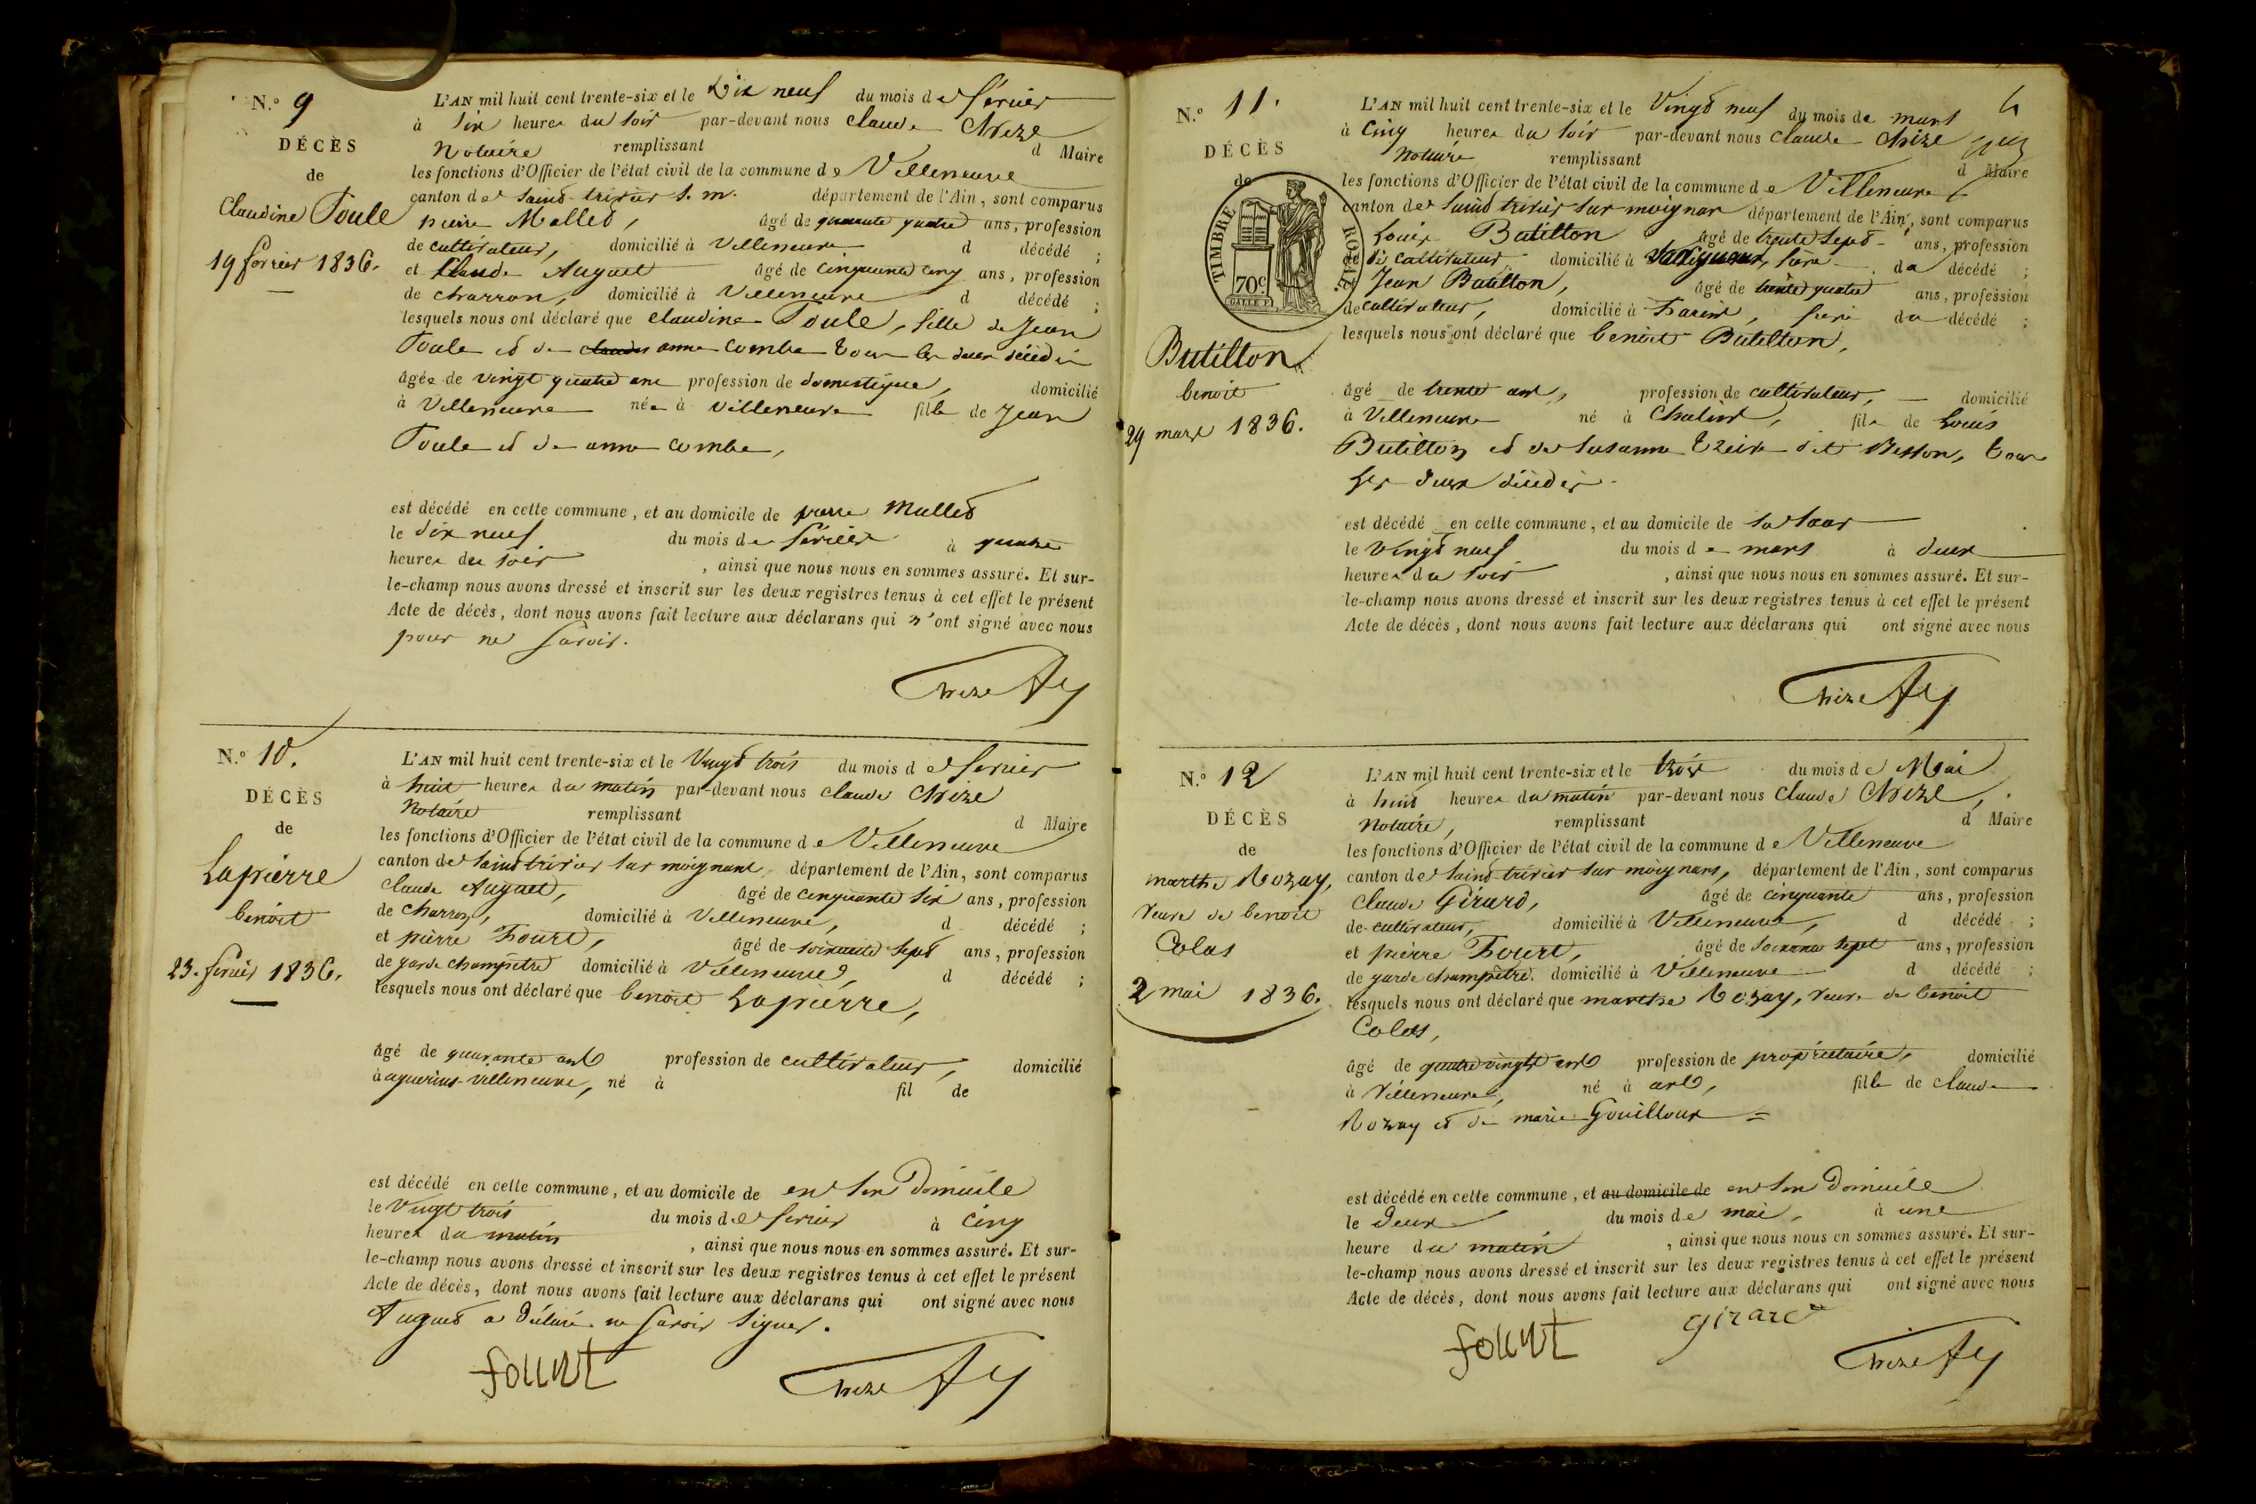 N.° 9
DÉCÈS
de
Claudine Poule
19 février 1836.
L'AN mil huit cent trente-six et le Dix neuf du mois de février
à six heures du soir par-devant nous claude Chize
Notaire remplissant d Maire
les fonctions d'Officier de l'état civil de la commune de Villeneuve
canton de Saint trivier s. m. département de l'Ain, sont comparus
pierre Mallet, âgé de quarante quatre ans, profession
de cultivateur, domicilié à Villeneuve d décédé ;
et Claude Auguet âgé de cinquante cinq ans, profession
de charron, domicilié à Villeneuve d décédé ;
lesquels nous ont déclaré que claudine Poule, fille de Jean
Poule et de anne combe tous les deux décédés
âgée de vingt quatre ans profession de domestique, domicilié
à Villeneuve née à villeneuve fille de Jean
Poule et de anne combe,
est décédé en cette commune, et au domicile de pierre Mallet
le dix neuf du mois de février à quatre
heures du soir , ainsi que nous nous en sommes assuré. Et sur-
le-champ nous avons dressé et inscrit sur les deux registres tenus à cet effet le présent
Acte de décès, dont nous avons fait lecture aux déclarans qui n'ont signé avec nous
pour ne savoir.
Chize
N.° 10.
DÉCÈS
de
Lapierre
benoit
23. février 1836.
L'AN mil huit cent trente-six et le Vingt trois du mois de février
à huit heures du matin par-devant nous claude Chize
Notaire remplissant d Maire
les fonctions d'Officier de l'état civil de la commune de Villeneuve
canton de Saint trivier sur moignans, département de l'Ain, sont comparus
claude Auguet, âgé de cinquante six ans, profession
de charron, domicilié à Villeneuve, d décédé ;
et pierre Fourt, âgé de soixante sept ans, profession
de garde champêtre domicilié à Villeneuve, d décédé ;
lesquels nous ont déclaré que benoit Lapierre,
âgé de quarante ans profession de cultivateur, domicilié
à villeneuve, né à fil de
est décédé en cette commune, et au domicile de en son Domicile
le Vingt trois du mois de février à cinq
heures du matin , ainsi que nous nous en sommes assuré. Et sur-
le-champ nous avons dressé et inscrit sur les deux registres tenus à cet effet le présent
Acte de décès, dont nous avons fait lecture aux déclarans qui ont signé avec nous
Auguet a déclaré ne savoir signer.
fourt Chize
N.° 11.
DÉCÈS
de
TIMBRE ROYAL
70c
Butillon
benoit
29 mars 1836.
L'AN mil huit cent trente-six et le Vingt neuf du mois de mars
à cinq heures du soir par-devant nous claude Chize
Notaire remplissant d Maire
les fonctions d'Officier de l'état civil de la commune de Villeneuve
canton de Saint trivier sur moignans département de l'Ain, sont comparus
Louis Butillon âgé de trente sept ans, profession
de cultivateur, domicilié à frère du décédé ;
et Jean Butillon, âgé de trente quatre ans, profession
de cultivateur, domicilié à Fareins, frère du décédé ;
lesquels nous ont déclaré que benoit Butillon,
âgé de trente ans, profession de cultivateur, domicilié
à Villeneuve né à Chaleins, fils de Louis
Butillon et de susanne dit Besson, tous
les deux décédés.
est décédé en cette commune, et au domicile de
le Vingt neuf du mois de mars à deux
heures du soir , ainsi que nous nous en sommes assuré. Et sur-
le-champ nous avons dressé et inscrit sur les deux registres tenus à cet effet le présent
Acte de décès, dont nous avons fait lecture aux déclarans qui ont signé avec nous
Chize
N.° 12
DÉCÈS
de
marthe Rozay,
veuve de benoit
Colas
2 mai 1836.
L'AN mil huit cent trente-six et le trois du mois de Mai
à huit heures du matin par-devant nous Claude Chize,
Notaire, remplissant d Maire
les fonctions d'Officier de l'état civil de la commune de Villeneuve
canton de Saint trivier sur moignans, département de l'Ain, sont comparus
claude Girard, âgé de cinquante ans, profession
de cultivateur, domicilié à Villeneuve, d décédé ;
et pierre Fourt, âgé de soixante sept ans, profession
de garde champêtre. domicilié à Villeneuve d décédé ;
lesquels nous ont déclaré que marthe Rozay, veuve de benoit
Colas,
âgé de quatre vingts ans profession de propriétaire, domicilié
à Villeneuve, né à ars, fille de claude
Rozay et de marie Gouilloux =
est décédé en cette commune, et au domicile de en son Domicile
le Deux du mois de mai, à une
heure du matin , ainsi que nous nous en sommes assuré. Et sur-
le-champ nous avons dressé et inscrit sur les deux registres tenus à cet effet le présent
Acte de décès, dont nous avons fait lecture aux déclarans qui ont signé avec nous
fourt girard Chize